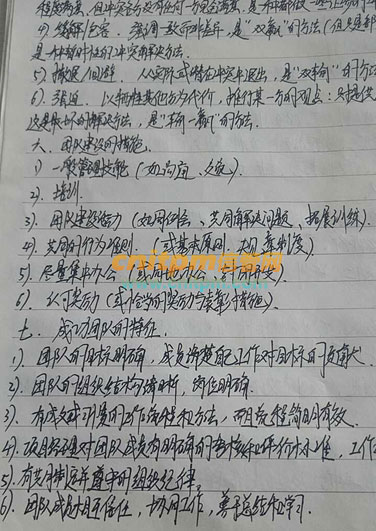 4) 缓解/包容. 强调一致而非差异, 是"双赢"的方法(但只是
是一种暂时性的冲突解决方法.
5) 撤退/回避. 从实际或潜在冲突中退出, 是"双输"的方
6) 强迫. 以牺牲其他方为代价, 推行某一方的观点;
方法, 是"一输一赢"的方法.
六、团队建设的措施.
1) 一般管理技能 (如沟通、交流).
2) 培训.
3) 团队建设活力 (如周例会、共同解决问题、拓展训练).
4) 共同的行为准则. (或基本原则、规章制度)
5) 尽量集中办公 (
cnitpm信管网
6) 认可奖励 (或恰当的奖励与表彰措施).
七. 成功团队的特征.
1) 团队的目标明确, 成员清楚自己工作对目标的贡献大
2) 团队的组织结构清晰, 岗位明确.
3) 有成文或习惯的工作流程和方法, 而且流程简明有效.
4) 项目经理对团队成员有明确的考核和评价标准, 工作
5) 有共同制定并遵守的组织纪律.
6) 团队成员相互信任, 协同工作, 善于总结和学习.